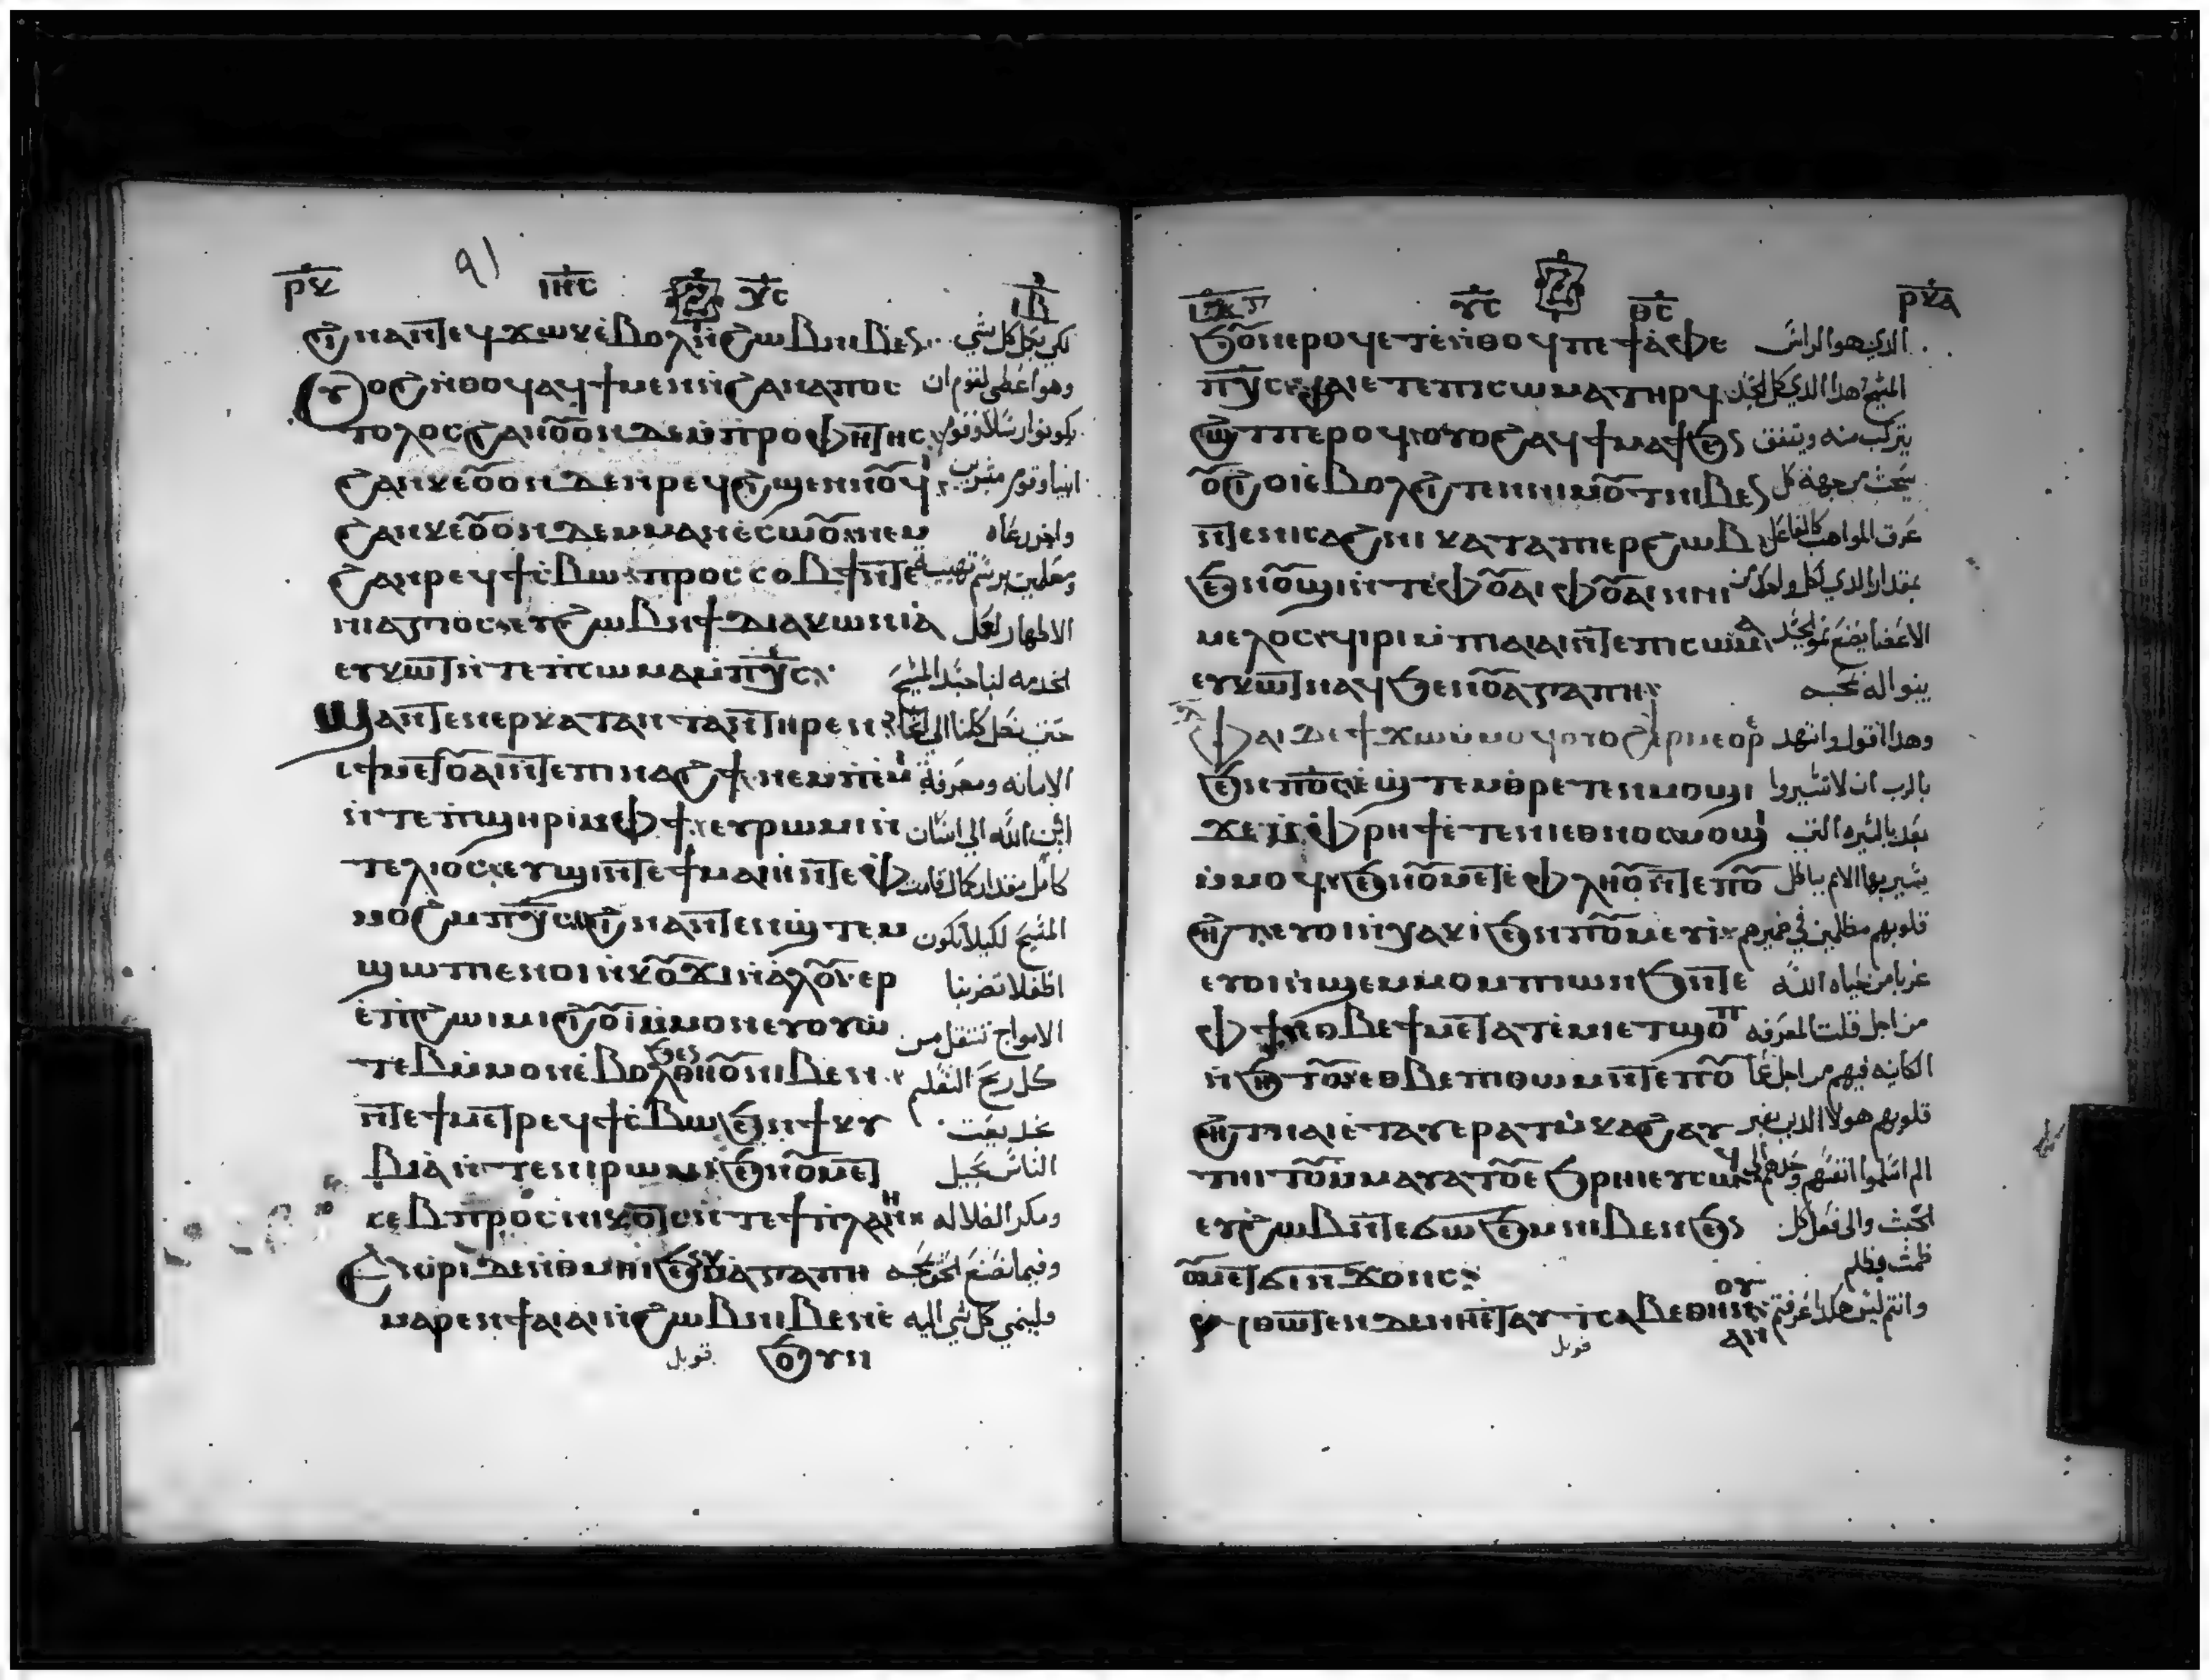 ⲣⲕ 91 ⲓⲏⲥ ⲭⲥ ⲓⲃ
ϩⲓⲛⲁ ⲛⲧⲉϥϫⲱⲕ ⲉⲃⲟⲗ ⲛϩⲱⲃ ⲛⲓⲃⲉⲛ لكي يكمل كل شي
ⲟⲩⲟϩ ⲛⲑⲟϥ ⲁϥϯ ⲙⲉⲛ ⲛϩⲁⲛⲁⲡⲟⲥ وهو اعطى لقوم ان
ⲧⲟⲗⲟⲥ ϩⲁⲛⲟⲩⲟⲛ ⲇⲉ ⲙⲡⲣⲟⲫⲏⲧⲏⲥ يكونوا رسلا وقوم
ϩⲁⲛⲕⲉⲟⲩⲟⲛ ⲇⲉ ⲛⲣⲉϥϩⲓϣⲉⲛⲛⲟⲩϥⲓ انبيا وقوم مبشرين
ϩⲁⲛⲕⲉⲟⲩⲟⲛ ⲇⲉ ⲙⲙⲁⲛⲉⲥⲱⲟⲩ ⲛⲉⲙ واخر رعاه
ϩⲁⲛⲣⲉϥϯⲥⲃⲱ ⲡⲣⲟⲥ ⲥⲟⲃϯ ⲛⲧⲉ ومعلمين برسم تهيية
ⲛⲓⲁⲅⲓⲟⲥ ⲉⲩϩⲱⲃ ⲛϯⲇⲓⲁⲕⲱⲛⲓⲁ الاطهار لعمل
ⲉⲩⲕⲱⲧ ⲛⲧⲉ ⲡⲥⲱⲙⲁ ⲙⲡⲭⲥ الخدمه لبنا جسد المسيح
ϣⲁⲛⲧⲉⲛⲉⲣⲕⲁⲧⲁⲛⲧⲁⲛ ⲧⲏⲣⲉⲛ حتى نصل كلنا الى
ⲉϯⲙⲉⲧⲟⲩⲁⲓ ⲛⲧⲉ ⲡⲓⲛⲁϩϯ ⲛⲉⲙ ⲡⲉⲙⲓ الامانه ومعرفة
ⲛⲧⲉ ⲡϣⲏⲣⲓ ⲙⲫϯ ⲉⲩⲣⲱⲙⲓ ⲛ ابن الله الي انسان
ⲧⲉⲗⲓⲟⲥ ⲉⲩϣⲓ ⲛⲧⲉ ϯⲙⲁⲓⲏ ⲛⲧⲉ ⲫ كامل بمقدار كمال قامت
ⲙⲟϩ ⲙⲡⲭⲥ ϩⲓⲛⲁ ⲛⲧⲉⲛϣⲧⲉⲙ المسيح لكيلا نكون
ϣⲱⲡⲉ ⲛⲟⲓ ⲛⲕⲟⲩϫⲓ ⲛⲁⲗⲟⲩ ⲉⲣ اطفلا تضربنا
ⲉⲡⲓϩⲱⲓⲙⲓ ϩⲓⲟⲩⲓ ⲙⲙⲟⲛ ⲉⲩⲟⲩⲱ الامواج تنتقل من
ⲧⲉⲃ ⲙⲙⲟⲛ ⲉⲃⲟⲗ ϧⲉⲛ ⲑⲏⲟⲩ ⲛⲓⲃⲉⲛ كل ريح التعليم
ⲛⲧⲉ ϯⲙⲉⲧⲣⲉϥϯⲥⲃⲱ ϧⲉⲛ ϯⲕⲩ بخديعت
ⲃⲓⲁ ⲛⲧⲉ ⲛⲓⲣⲱⲙⲓ ϧⲉⲛ ⲟⲩⲙⲉⲧ الناس بحيل
ⲥⲉⲃ ⲡⲣⲟⲥ ⲛⲓⲕⲟⲧⲥ ⲛⲧⲉ ϯⲡⲗⲁⲛⲏ ومكر الضلاله
ⲉⲛⲓⲣⲓ ⲇⲉ ⲛⲑⲙⲏⲓ ϧⲉⲛ ⲟⲩⲁⲅⲁⲡⲏ وفيما نصنع الحق بمحبه
ⲙⲁⲣⲉⲛϯⲁⲓⲁⲓ ⲛϩⲱⲃ ⲛⲓⲃⲉⲛ ⲉ ولينمي كل شي اليه
ϧⲟⲩⲛ قوبل
ⲭⲥ ⲑⲥ ⲣⲕⲁ
ϧⲟⲩⲛ ⲉⲣⲟϥ ⲉⲧⲉ ⲛⲑⲟϥ ⲡⲉ ϯⲁⲫⲉ الذي هو الراس
ⲡⲭⲥ ⲫⲁⲓ ⲉⲧⲉ ⲡⲓⲥⲱⲙⲁ ⲧⲏⲣϥ المسيح هدا الدي كل الجسد
ϩⲱⲧⲡ ⲉⲣⲟϥ ⲟⲩⲟϩ ⲁϥϯⲙⲁϯ ϧⲉⲛ يتركب منه ويتفق
ⲟⲩϩⲓⲟⲓ ⲉⲃⲟⲗ ϩⲓⲧⲉⲛ ⲛⲓⲙⲟⲩϯ ⲛⲓⲃⲉⲛ من جهة كل
ⲛⲧⲉ ⲛⲓⲥⲁϩⲛⲓ ⲕⲁⲧⲁ ⲡⲉⲣϩⲱⲃ عرق المواهب كالفاعل
ϧⲉⲛ ⲟⲩϣⲓ ⲛⲧⲉ ⲫⲟⲩⲁⲓ ⲫⲟⲩⲁⲓ ⲛⲛⲓ بمقدار الدي لكل واحد من
ⲙⲉⲗⲟⲥ ϥⲓⲣⲓ ⲙⲡⲁⲓⲁⲓ ⲛⲧⲉ ⲡⲓⲥⲱⲙⲁ الاعضا يصنع نمو الجسد
ⲉⲩⲕⲱⲧ ⲛⲁϥ ϧⲉⲛ ⲟⲩⲁⲅⲁⲡⲏ بنوا له بمحبه
ⲫⲁⲓ ⲇⲉ ϯϫⲱ ⲙⲙⲟϥ ⲟⲩⲟϩ ϯⲉⲣⲙⲉⲑⲣⲉ وهدا اقول واشهد
ϧⲉⲛ ⲡⲟⲥ ⲉϣⲧⲉⲙⲑⲣⲉⲧⲉⲛⲙⲟϣⲓ بالرب ان لا تسيروا
ϫⲉ ⲙⲫⲣⲏϯ ⲉⲧⲉ ⲛⲓⲉⲑⲛⲟⲥ ⲙⲟϣⲓ بعد بالسيره التي
ⲙⲙⲟϥ ϧⲉⲛ ⲟⲩⲙⲉⲧⲉⲫⲗⲏⲟⲩ ⲛⲧⲉ ⲡⲟⲩ يسير بها الامم بباطل
ϩⲏⲧ ⲉⲩⲟⲓ ⲛⲭⲁⲕⲓ ϧⲉⲛ ⲡⲟⲩⲙⲉⲩⲓ قلوبهم مظلمين في ضميرهم
ⲉⲩⲟⲓ ⲛϣⲉⲙⲙⲟ ⲙⲡⲱⲛϧ ⲛⲧⲉ غربا من حياه الله
ⲫϯ ⲉⲑⲃⲉ ϯⲙⲉⲧⲁⲧⲉⲙⲓ ⲉⲧϣⲟⲡ من اجل قلت المعرفه
ⲛϧⲏⲧⲟⲩ ⲉⲑⲃⲉ ⲡⲑⲱⲙ ⲛⲧⲉ ⲡⲟⲩ الكاينه فيهم من اجل عما
ϩⲏⲧ ⲛⲁⲓ ⲉⲧⲁⲩⲉⲣⲁⲧⲙⲕⲁϩ ⲁⲩ قلوبهم هولا الدين بغير
ⲧⲏⲓⲧⲟⲩ ⲙⲙⲁⲩⲁⲧⲟⲩ ⲉϧⲣⲏⲓ ⲉⲩⲥⲱϥ الم اسلموا انفسهم وحدهم الي
ⲉⲩϩⲱⲃ ⲛⲧⲉ ϭⲱϧⲉⲙ ⲛⲓⲃⲉⲛ ϧⲉⲛ والى فعل كل
ⲟⲩⲙⲉⲧϭⲓⲛϫⲟⲛⲥ بظلم
ⲛⲑⲱⲧⲉⲛ ⲇⲉ ⲙⲡⲁⲓⲣⲏϯ ⲁⲛ وانتم ليس هكدا عرفتم
قوبل